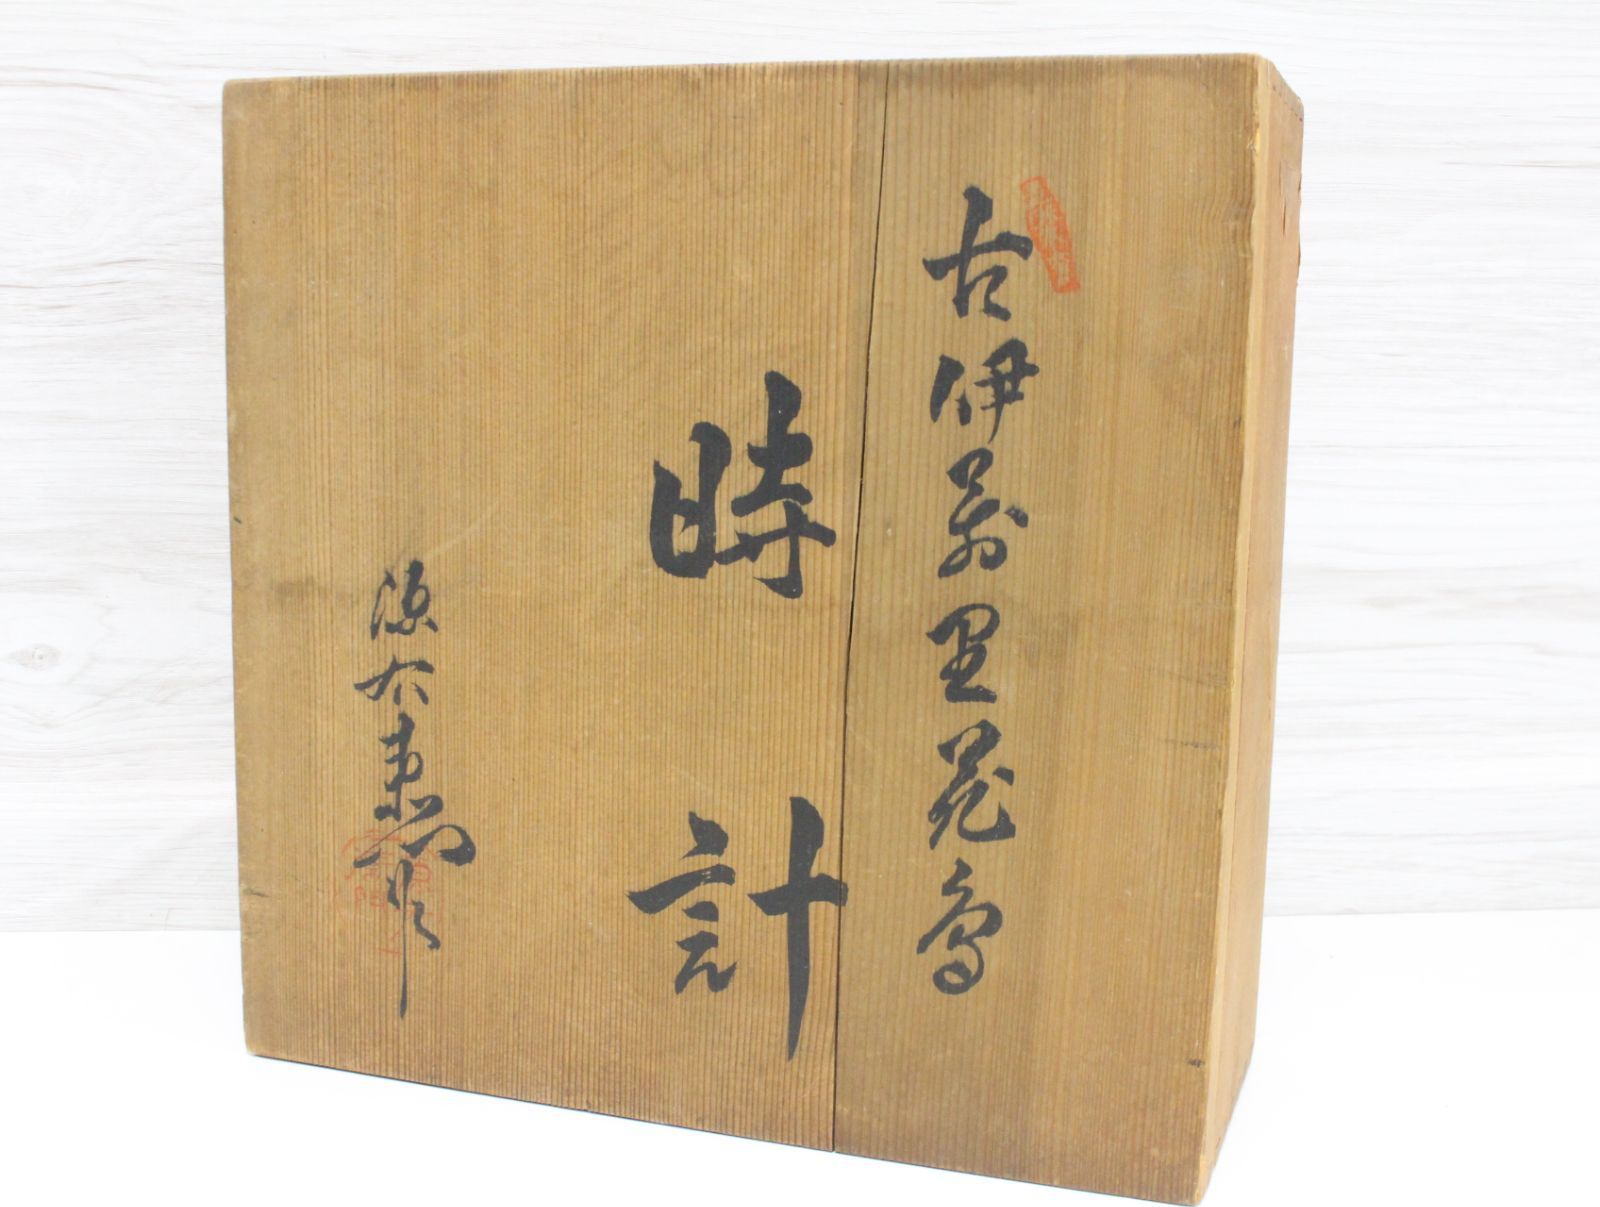 古伊万里花鳥
時計
源右衛門作